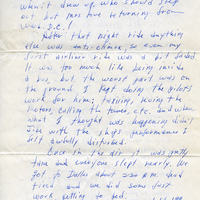 wasn't drew up who should step
out but mrs. tive returning from
was. D.C.!
After that night ride anything
else was anti-climax, so even my
first airliner ride was a bit faded
It was too much like being inside
a bus, but the worst part was on
the ground. I kept doing the pilot's
work for him; taxiing, revving the
motors, calling the tower, etc. and when
what I thought was happening didn't
jibe with the ship's performance I
felt awfully disturbed.
Once in the air it was pretty
tame and everyone slept nearly. We
got to Dallas about 2:30 A.M. dead
tired and we did some fast
work getting to bed.